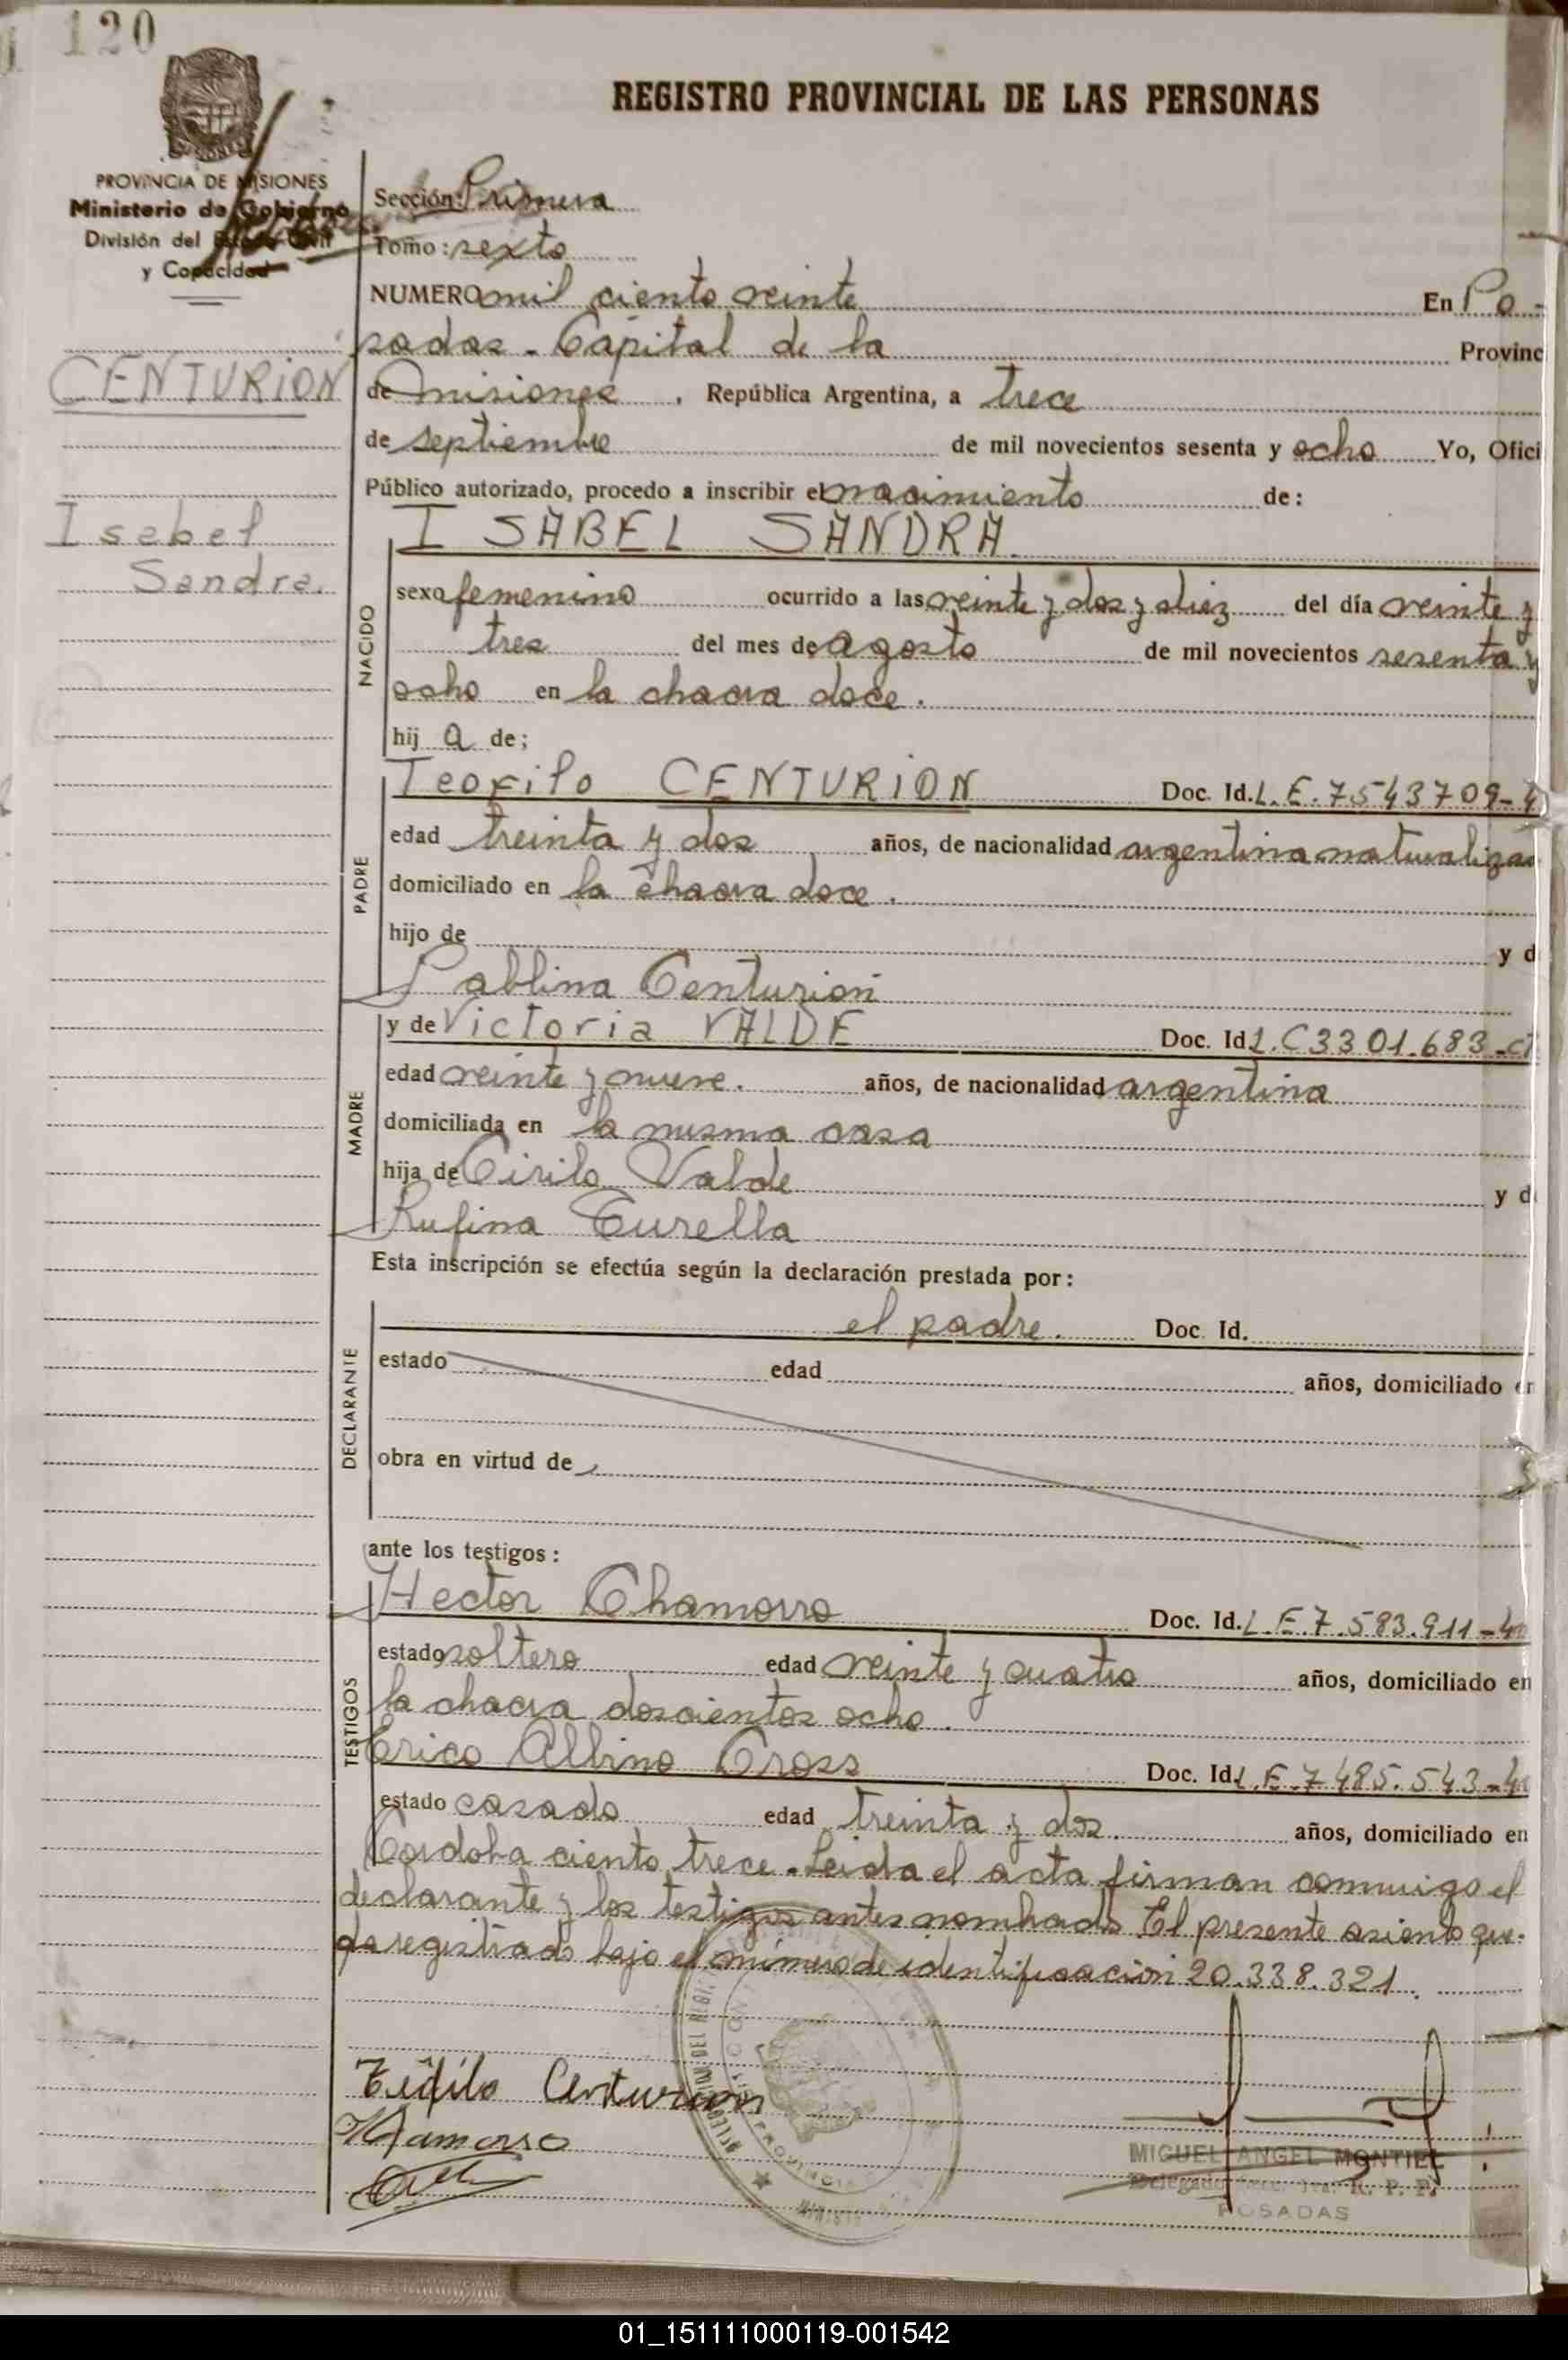 120
REGISTRO PROVINCIAL DE LAS PERSONAS
PROVINCIA DE MISIONES
Ministerio de Gobierno
División del Estado Civil
y Capacidad
Sección: Primera
Tomo: sexto
NUMERO mil ciento veinte En Po-
sadas - Capital de la Provinc
CENTURION
de Misiones , República Argentina, a trece
de septiembre de mil novecientos sesenta y ocho Yo, Ofici
Público autorizado, procedo a inscribir el nacimiento de:
Isabel
Sandra.
ISABEL SANDRA
NACIDO
sexo femenino ocurrido a las veinte y dos y diez del día veinte y
tres del mes de agosto de mil novecientos sesenta y
ocho en la chacra doce.
hij a de;
PADRE
Teofilo CENTURION Doc. Id. L.E. 7543709-
edad treinta y dos años, de nacionalidad argentina naturaliza
domiciliado en la chacra doce.
hijo de y d
Pablina Centurion
MADRE
y de Victoria VALDE Doc. Id. L.C 3301.683-
edad veinte y nueve. años, de nacionalidad argentina
domiciliada en la misma casa
hija de Cirilo Valde y d
Rufina
Esta inscripción se efectúa según la declaración prestada por:
DECLARANTE
el padre. Doc. Id.
estado edad años, domiciliado en
obra en virtud de
ante los testigos:
TESTIGOS
Hector Chamorro Doc. Id. L.E. 7.583.911-
estado soltero edad veinte y cuatro años, domiciliado en
la chacra doscientos ocho.
Erico Albino Cross Doc. Id. L.E. 7485.543-
estado casado edad treinta y dos. años, domiciliado en
Cordoba ciento trece. Leida el acta firman conmigo el
declarante y los testigos antes nombrado. El presente asiento que-
da registrado bajo el número de identificación 20.338.321.
Teófilo Centurion
Hamorro
MIGUEL ANGEL MONTIEL
Delegado R. P. P.
POSADAS
01_151111000119-001542